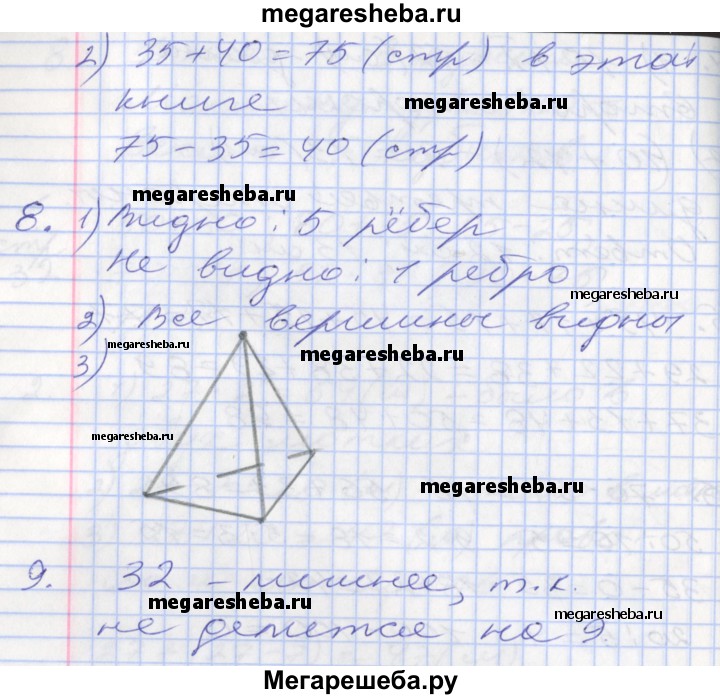 megaresheba.ru
2) 35+40=75 (стр) в этой
книге
megaresheba.ru
75-35=40 (стр)
megaresheba.ru
8. 1) Видно: 5 рёбер
Не видно: 1 ребро
megaresheba.ru
2) Все вершины видны
megaresheba.ru
megaresheba.ru
3)
megaresheba.ru
megaresheba.ru
9. 32 - лишнее, т.к.
megaresheba.ru
megaresheba.ru
не делится на 9.
Мегарешеба.ру